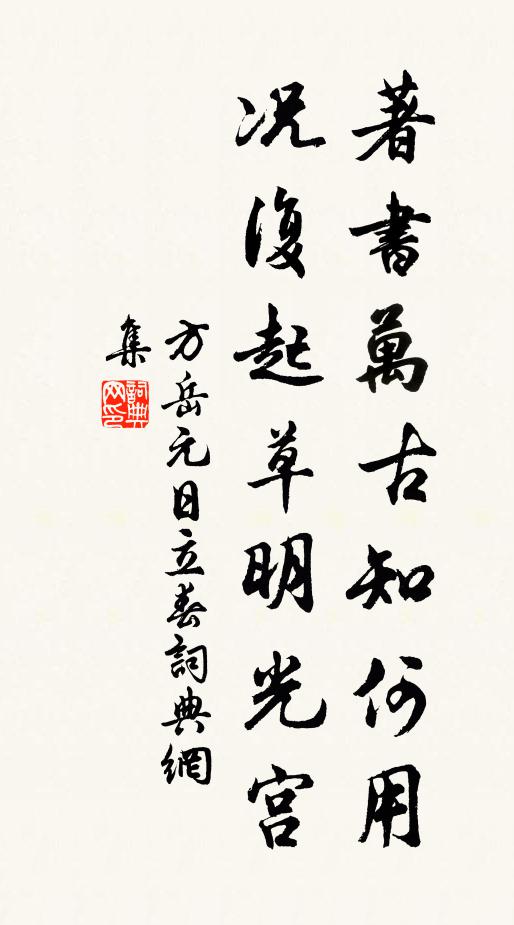 著書萬古知何用
况復起草明光宫
方岳元日立春詞典網
集
詞典
网印